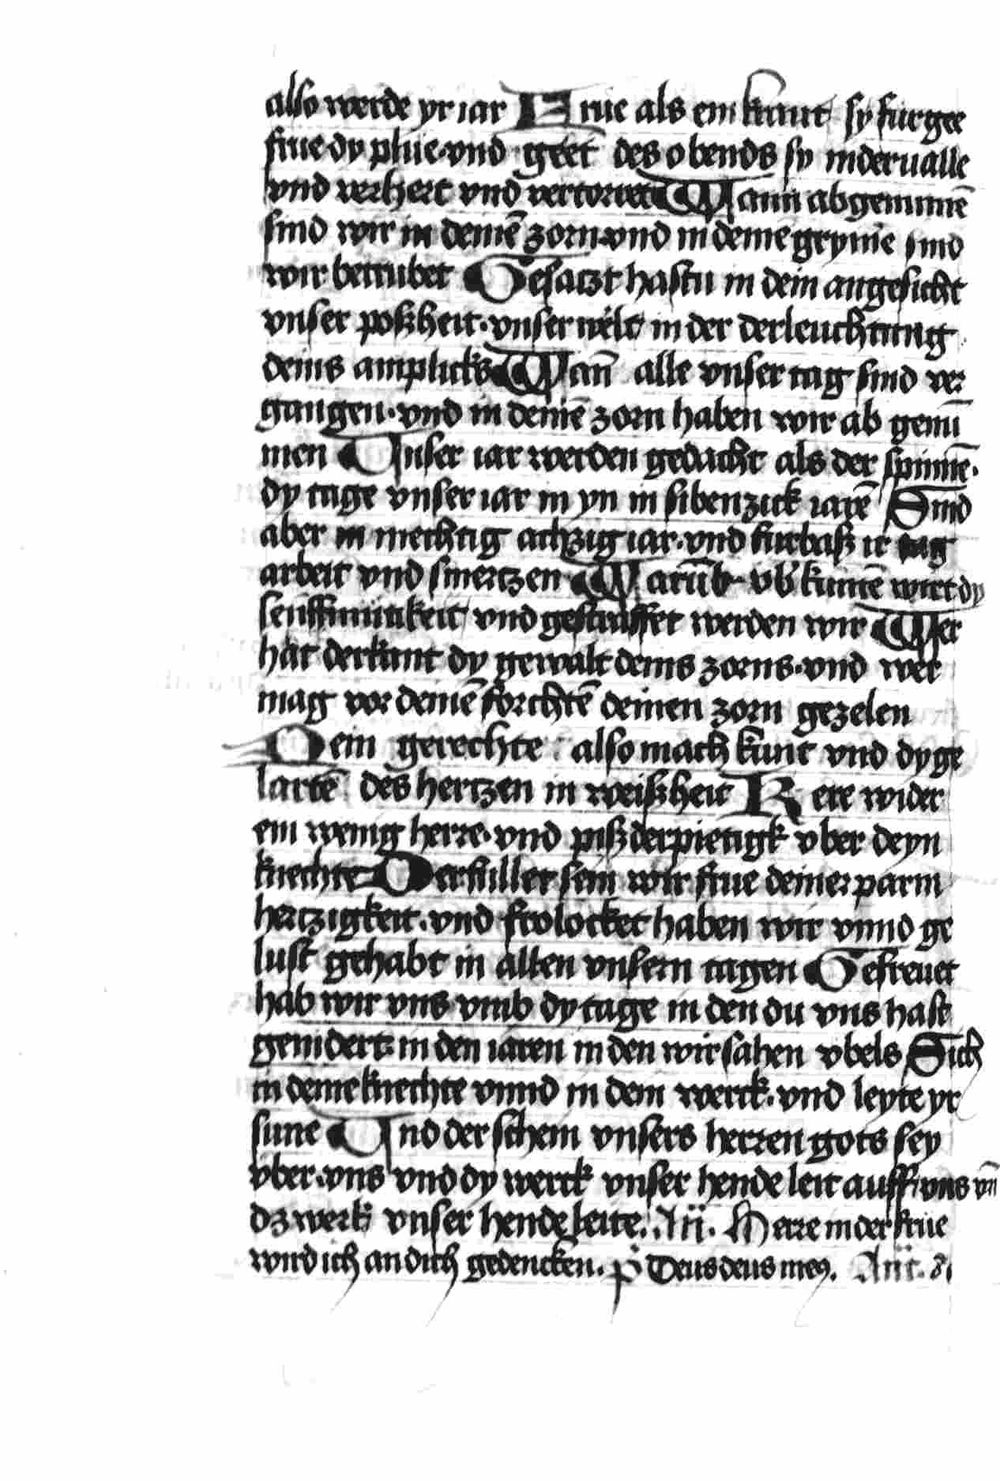 also werde yr iar Frue als ein kraut sy furgee
frue dy plue · vnd geet des obends sy nider valle
vnd verhert vnd vertorret Wann abgenumē
sind wir in deinē zorn · vnd in deinē gryme sind
wir betrubet Gesaczt hastu in dein angesicht
vnser poßheit · vnser welt in der derleuchtung
deins amplicks Wan̄ alle vnser tag sind ver
gangen · vnd in deinē zorn haben wir ab genū
men Unser iar werden gedacht als der spinnē ·
dy tage vnser iar in yn in sibenzick iarē Sind
aber in mechtig achzig iar · vnd furbaß ir tag
arbeit vnd smertzen Warūb · vb kumē wirt dy
senfftmütikeit vnd gestraffet werden wir Wer
hat derkant dy gewalt deins zorns · vnd wer
mag vor deinē forchtē deinen zorn gezelen
Dein gerechte also mach kunt vnd dy ge
lartē des hertzen in weißheit Kere wider
ein wenig herre · vnd piß derpietigk vber deyn
knechte Derfullet sein wir frue deiner parm
hertzigkeit · vnd frolocket haben wir vnnd ge
lust gehabt in allen vnsern tagen Gefreuet
hab wir vns vmb dy tage in den du vns hast
genidert · in den iaren in den wir sahen vbels Sich
in deine knechte vnnd in dein werck · vnd leyte yr
sune Und der schein vnsers herren gots sey
vber · vns vnd dy werck vnser hende leit auff vns vn̄
dz werk vnser hende leite. An̄. Herre in der frue
wird ich an dich gedencken. p̄s Deus deus meꝰ. Ant.